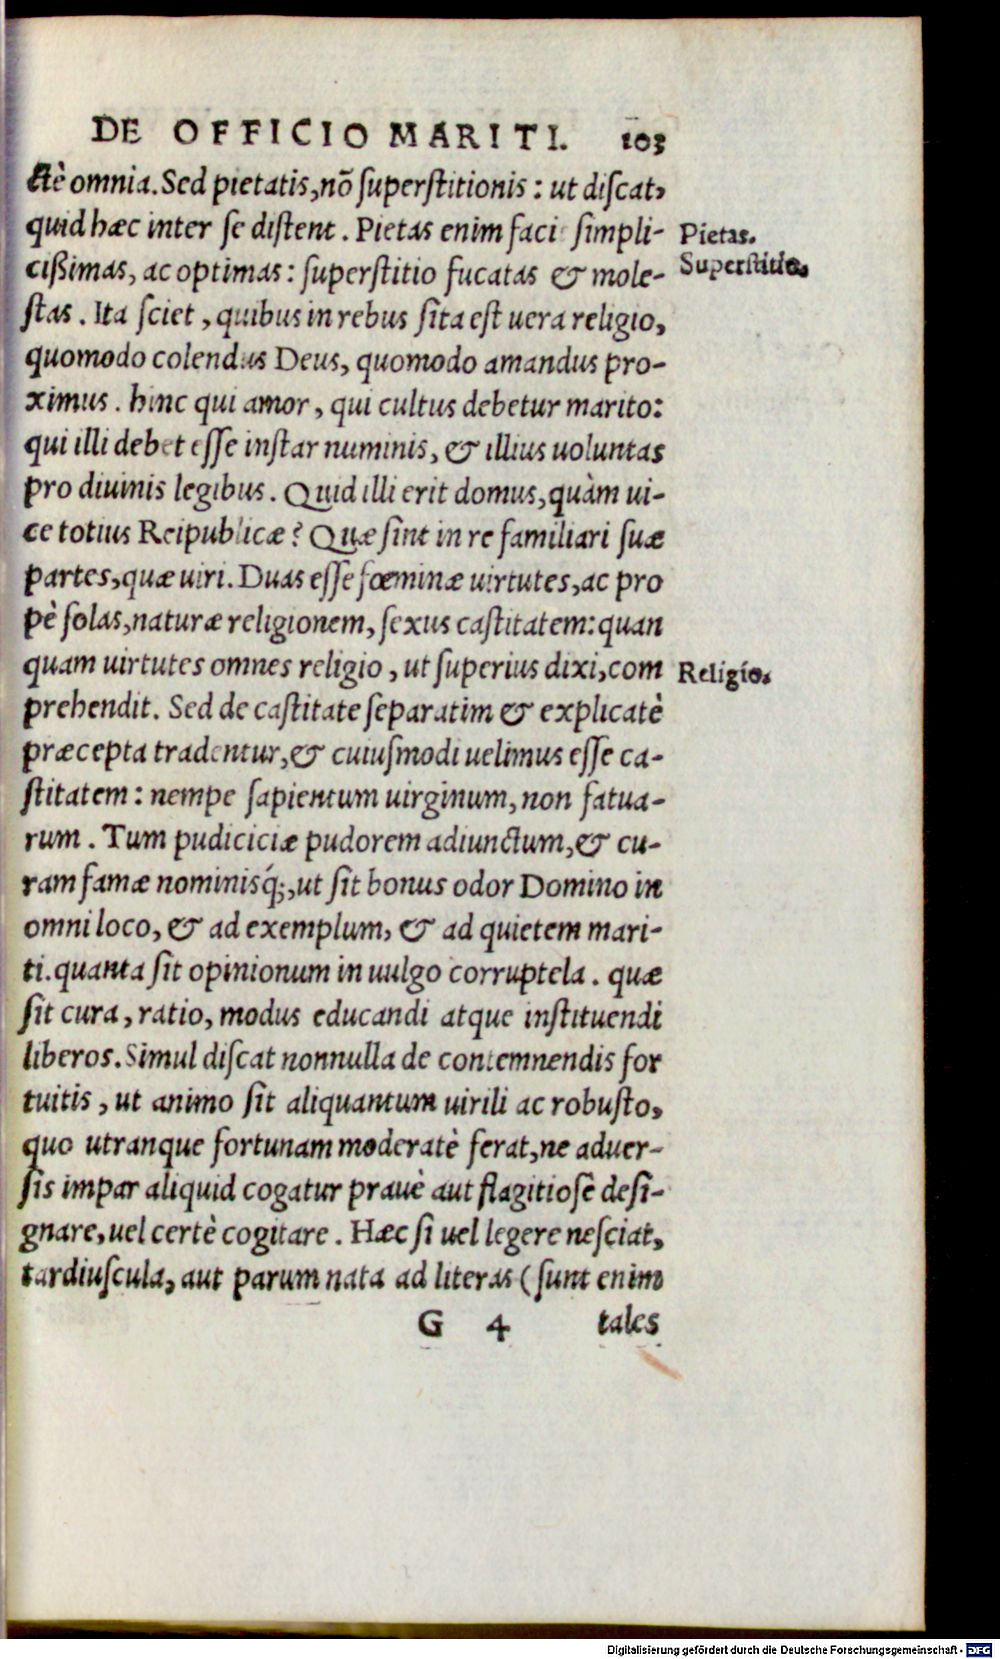 DE OFFICIO MARITI. 103
ctè omnia. Sed pietatis, nõ superstitionis: ut discat,
quid hæc inter se distent. Pietas enim faci simpli-
cißimas, ac optimas: superstitio fucatas & mole-
stas. Ita sciet, quibus in rebus sita est uera religio,
quomodo colendus Deus, quomodo amandus pro-
ximus. hinc qui amor, qui cultus debetur marito:
qui illi debet esse instar numinis, & illius uoluntas
pro diuinis legibus. Quid illi erit domus, quàm ui-
ce totius Reipublicæ? Quæ sint in re familiari suæ
partes, quæ uiri. Duas esse fœminæ uirtutes, ac pro
pè solas, naturæ religionem, sexus castitatem: quan
quam uirtutes omnes religio, ut superius dixi, com
prehendit. Sed de castitate separatim & explicatè
præcepta tradentur, & cuiusmodi uelimus esse ca-
stitatem: nempe sapientum uirginum, non fatua-
rum. Tum pudiciciæ pudorem adiunctum, & cu-
ram famæ nominisq́;, ut sit bonus odor Domino in
omni loco, & ad exemplum, & ad quietem mari-
ti. quanta sit opinionum in uulgo corruptela. quæ
sit cura, ratio, modus educandi atque instituendi
liberos. Simul discat nonnulla de contemnendis for
tuitis, ut animo sit aliquantum uirili ac robusto,
quo utranque fortunam moderatè ferat, ne aduer-
sis impar aliquid cogatur prauè aut flagitiosè desi-
gnare, uel certè cogitare. Hæc si uel legere nesciat,
tardiuscula, aut parum nata ad literas (sunt enim
G 4 tales
Pietas.
Superstitio.
Religio.
Digitalisierung gefördert durch die Deutsche Forschungsgemeinschaft - DFG